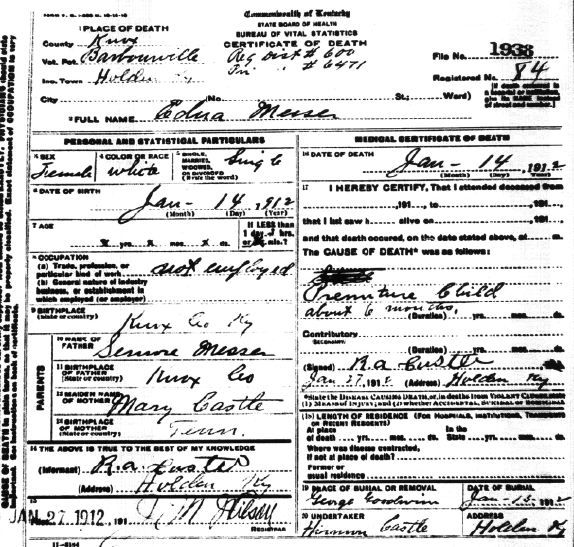 Commonwealth of Kentucky
STATE BOARD OF HEALTH
BUREAU OF VITAL STATISTICS
CERTIFICATE OF DEATH
1 PLACE OF DEATH
County Knox
Vot. Pct. Barbourville
Reg Dist # 600
# 6471
File No. 1938
Inc. Town Holden Ky
Registered No. 84
City No. St.; Ward)
2 FULL NAME Edna Messer
PERSONAL AND STATISTICAL PARTICULARS
3 SEX Female
4 COLOR OR RACE White
5 SINGLE, MARRIED, WIDOWED, OR DIVORCED (Write the word) Single
6 DATE OF BIRTH Jan- 14, 1912
(Month) (Day) (Year)
7 AGE
yrs. mos. ds.
If LESS than 1 day, hrs. or min.?
8 OCCUPATION
(a) Trade, profession, or particular kind of work not employed
(b) General nature of industry business, or establishment in which employed (or employer)
9 BIRTHPLACE (State or country) Knox Co Ky
PARENTS
10 NAME OF FATHER Messer
11 BIRTHPLACE OF FATHER (State or country) Knox Co
12 MAIDEN NAME OF MOTHER Mary Castle
13 BIRTHPLACE OF MOTHER (State or country) Tenn.
14 THE ABOVE IS TRUE TO THE BEST OF MY KNOWLEDGE
(Informant) R.a
(Address) Holden Ky
15 JAN 27 1912, 191
REGISTRAR
MEDICAL CERTIFICATE OF DEATH
16 DATE OF DEATH
Jan- 14, 1912
(Month) (Day) (Year)
17 I HEREBY CERTIFY, That I attended deceased from
, 191 , to , 191 ,
that I last saw h alive on , 191 ,
and that death occured, on the date stated above, at m.
The CAUSE OF DEATH* was as follows:
Premature Child
about 6 months,
(Duration) yrs. mos. ds.
Contributory
(Duration) yrs. mos. ds.
(Signed) R.a
Jan 27, 191 (Address) Holden Ky
18 LENGTH OF RESIDENCE (FOR HOSPITALS, INSTITUTIONS, TRANSIENTS OR RECENT RESIDENTS)
At place of death yrs. mos. ds. State yrs. mos. ds.
Where was disease contracted, if not at place of death?
Former or usual residence
19 PLACE OF BURIAL OR REMOVAL George Goodwin
DATE OF BURIAL Jan- 15, 1912
20 UNDERTAKER Castle
ADDRESS Holden Ky